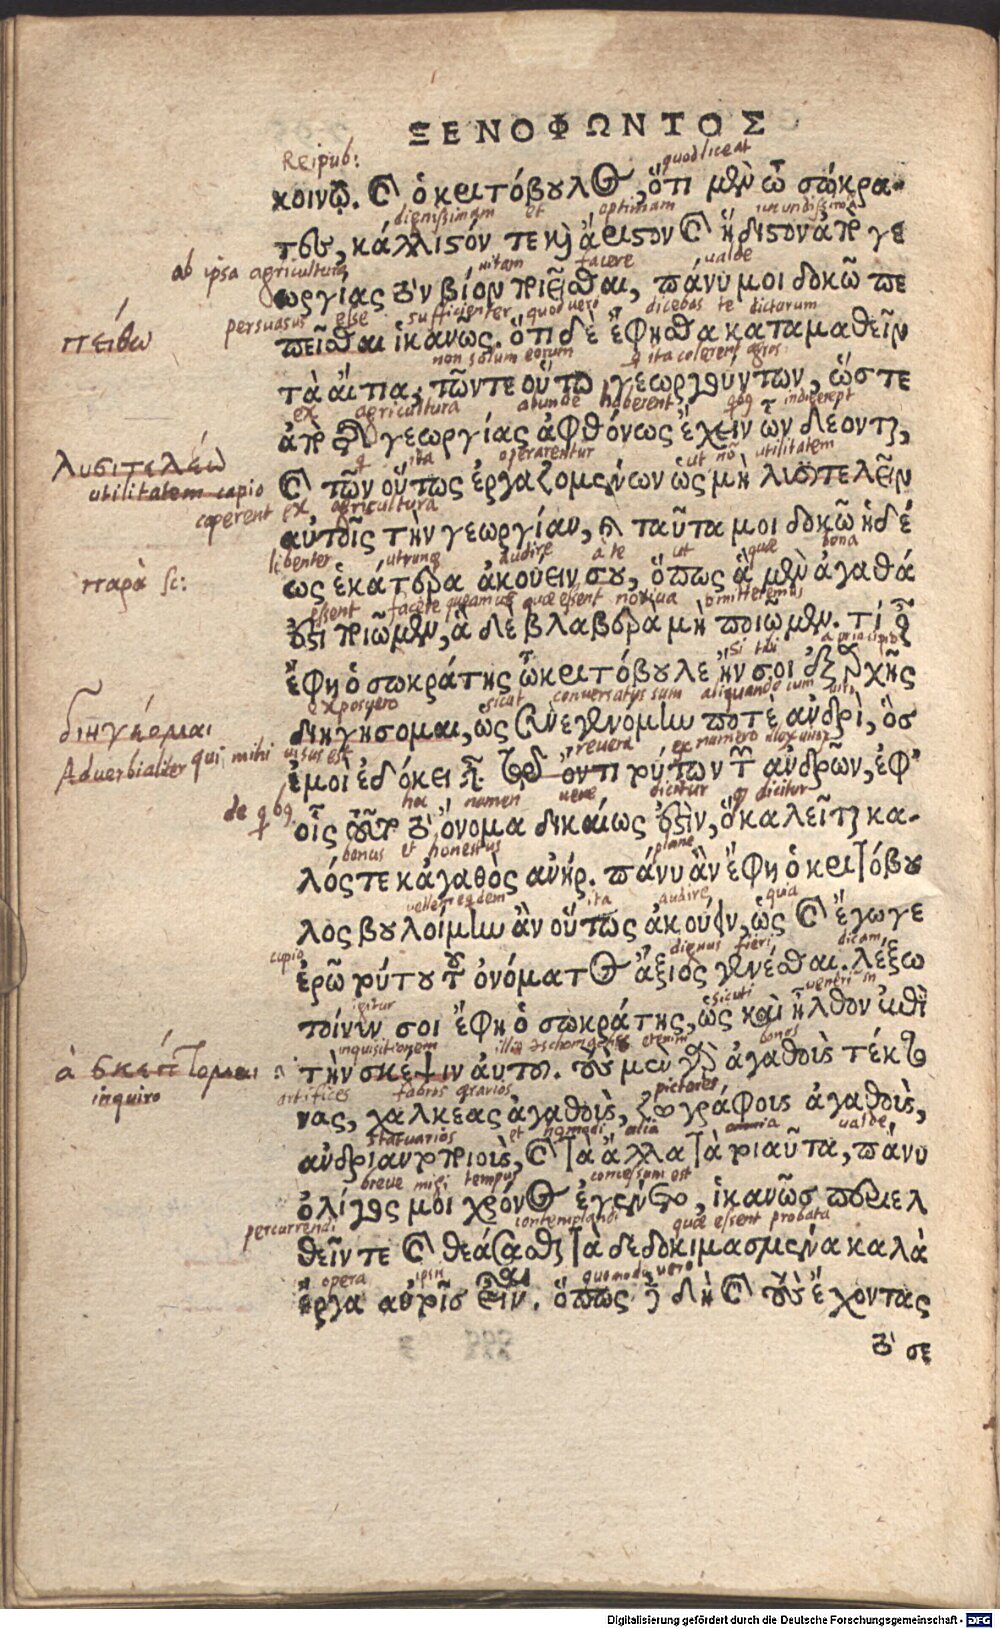 ΞΕΝΟΦΩΝΤΟΣ
Reipub: quod liceat
κοινῷ. καὶ ὁ κριτόβουλος, ὅτι μὲν ὦ σώκρα-
dignissimam et optimam iucundissima
τες, κάλλιστόν τε καὶ ἄριστον καὶ ἥδιστον ἀπὸ γε
ab ipsa agricultura vitam facere valde
ωργίας τὸν βίον ποιεῖσθαι, πάνυ μοι δοκῶ πε
πείθω
persuasus esse sufficienter quod vero dicebas te dictorum
πεῖσθαι ἱκανῶς. ὅτι δὲ ἔφησθα καταμαθεῖν
non solum eorum q ita colerent agros
τὰ αἴτια, τῶν τε οὕτω γεωργούντων, ὥστε
ex agricultura abunde haberent qbg indigerept
ἀπὸ τῆς γεωργίας ἀφθόνως ἔχειν ὧν δέονται,
λυσιτελέω
q ita operarentur ut nō utilitatem
utilitatem capio
καὶ τῶν οὕτως ἐργαζομένων ὡς μὴ λυσιτελεῖν
caperent ex agricultura
αὐτοῖς τὴν γεωργίαν, καὶ ταῦτα μοι δοκῶ ἡδέ
libenter utrunq audire à te ut quae bona
παρὰ sc:
ως ἑκάτερα ἀκούειν σου, ὅπως ἃ μὲν ἀγαθά
essent facere queamus quae essent noxiua omitteremus
ἐστι ποιῶμεν, ἃ δὲ βλαβερὰ μὴ ποιῶμεν. τί οὖν
si tibi a principio
ἔφη ὁ σωκράτης ὦ κριτόβουλε ἤν σοι ἐξ ἀρχῆς
exposuero sicut conversatus sum aliquando cum viro
διηγέομαι
διηγήσομαι, ὡς συνεγενόμην ποτὲ ἀνδρὶ, ὃς
Adverbialiter qui mihi visus est revera ex numero
ἐμοὶ ἐδόκει εἶναι τῷ ὄντι τούτων τῶν ἀνδρῶν, ἐφ'
de qbg hoc nomen vere dicitur q dicitur
οἷς τοῦτο τὸ ὄνομα δικαίως ἐστὶν, ὃ καλεῖται κα-
bonus et honestus plane
λός τε κἀγαθὸς ἀνήρ. πάνυ ἂν ἔφη ὁ κριτόβου
vellem eqdem ita audire quia
λος βουλοίμην ἂν οὕτως ἀκούειν, ὡς καὶ ἔγωγε
cupio dignus fieri dicam
ἐρῶ τούτου τοῦ ὀνόματος ἄξιος γενέσθαι. λέξω
igitur sicuti venerim in
τοίνυν σοι ἔφη ὁ σωκράτης, ὡς καὶ ἦλθον ἐπὶ
inquisitionem etenim bonos
ἀ σκέπτομαι
τὴν σκέψιν αὐτοῦ. τοὺς μὲν γὰρ ἀγαθοὺς τέκτο
inquiro
artifices fabros aerarios pictores
νας, χαλκέας ἀγαθοὺς, ζωγράφους ἀγαθοὺς,
statuarios et alia omnia valde
ἀνδριαντοποιοὺς, καὶ τὰ ἄλλα τὰ τοιαῦτα, πάνυ
breve mihi tempus concessum est
ὀλίγος μοι χρόνος ἐγένετο, ἱκανῶς περιελ
percurrendi contemplandi quae essent probata
θεῖν τε καὶ θεάσασθαι τὰ δεδοκιμασμένα καλὰ
opera ipsis quomodo vero
ἔργα αὐτοῖς εἶναι. ὅπως δὲ δὴ καὶ τοὺς ἔχοντας
τὸ σε
Digitalisierung gefördert durch die Deutsche Forschungsgemeinschaft - DFG